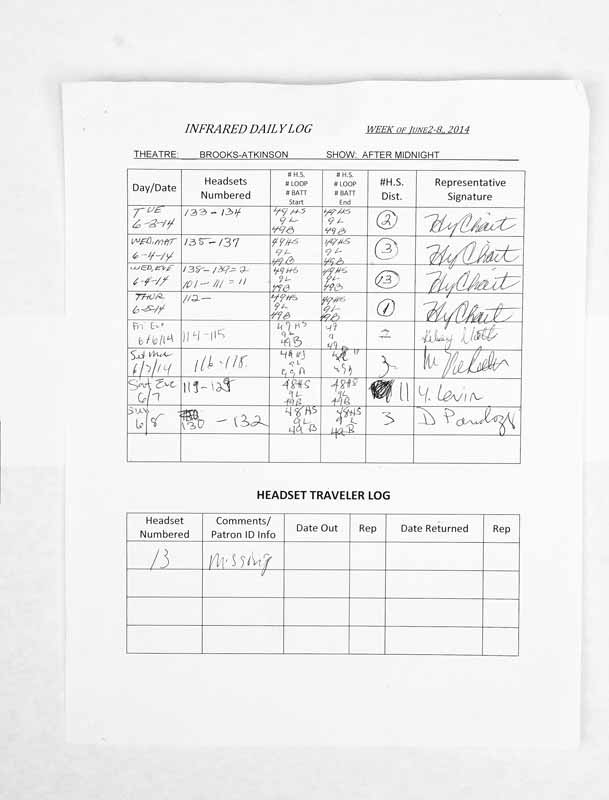 INFRARED DAILY LOG WEEK OF JUNE2-8, 2014
THEATRE: BROOKS-ATKINSON SHOW: AFTER MIDNIGHT
Day/Date Headsets Numbered # H.S. # LOOP # BATT Start # H.S. # LOOP # BATT End #H.S. Dist. Representative Signature
TUE 6-3-14 133-134 49HS 9L 49B 49HS 9L 49B 2 Hy Chait
WED, MAT 6-4-14 135-137 49HS 9L 49B 49HS 9L 49B 3 Hy Chait
WED, EVE 6-4-14 138-139=2 101-111=11 49HS 9L 49B 49HS 9L 49B 13 Hy Chait
THUR 6-5-14 112- 49HS 9L 49B 49HS 9L 49B 1 Hy Chait
Fri Eve 6/6/14 114-115 49HS 9L 49B 49 9 49B 2 Kelsey
Sat Mat 6/7/14 116-118. 48HS 9L 3 M
Sat Eve 6/7 119-129 48HS 9L 49B 48HS 9L 49B 11 Y. Levin
Sun 6/8 130 - 132 48HS 9L 49B 48HS 9L 49B 3 D
HEADSET TRAVELER LOG
Headset Numbered Comments/ Patron ID Info Date Out Rep Date Returned Rep
13 missing